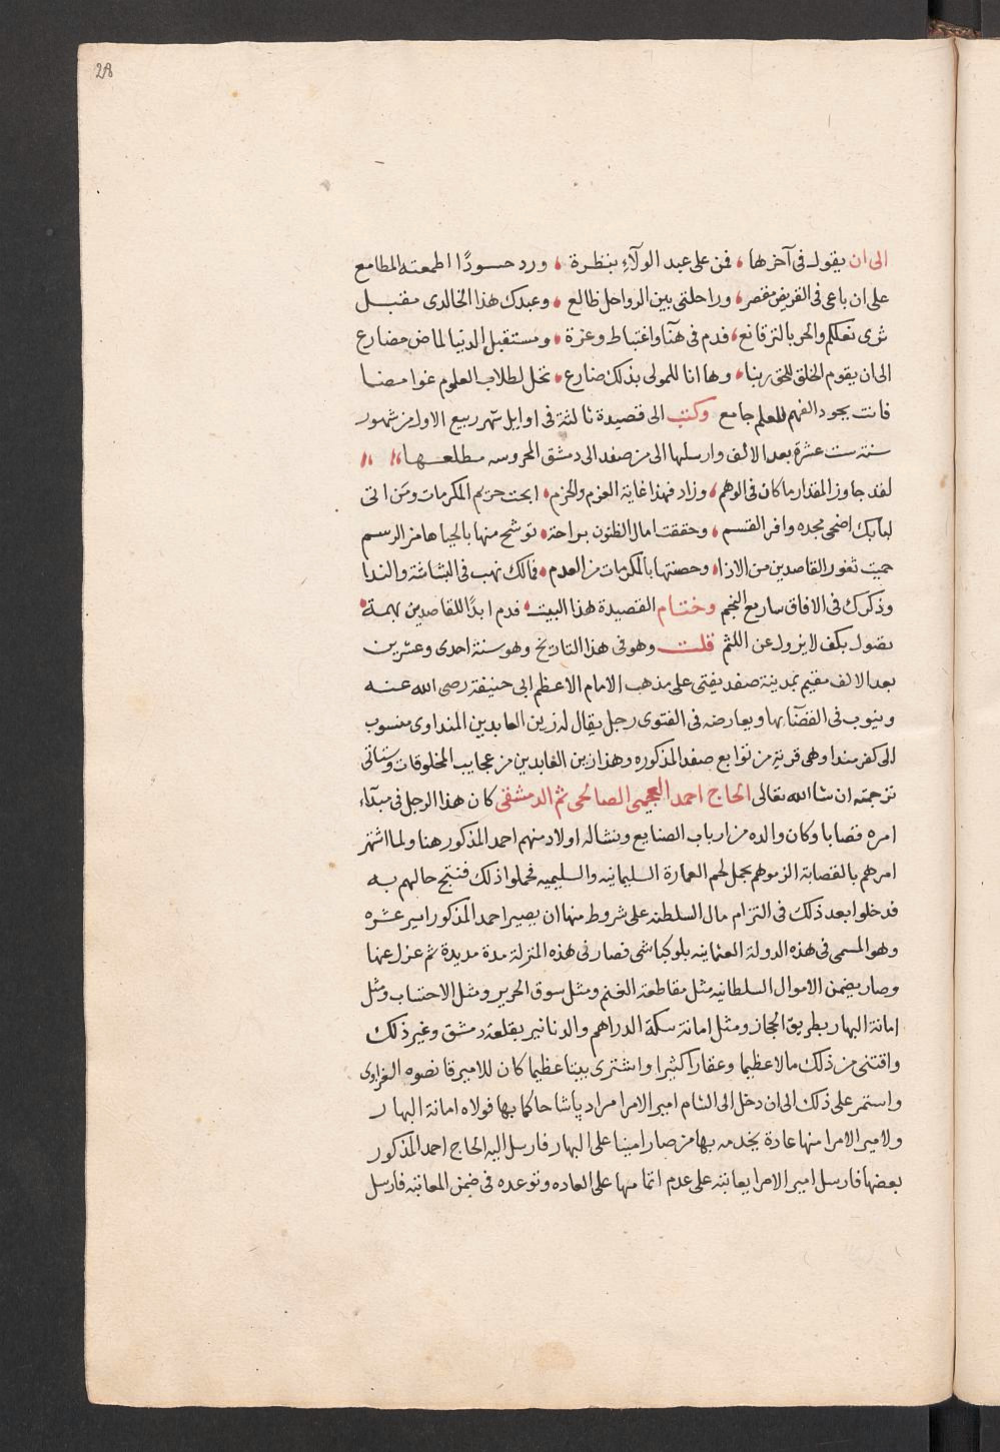 28
الى ان يقول فى آخرها ، فمن على عبد الولآءِ بنظرة ، ورد حسودًا اطمعته المطامع
على ان باعى فى القريض مقصر ، وراحلتى بين الرواحل ظالع ، وعبدك هذا الخالدى مقبل
ثرى نعلكم والحر بالتر قانع ، فدم فى هنآ واغتباط وعزة ، ومستقبل الدنيا لماض مضارع
الى ان يقوم الخلق للحق ربنا ، وها انا للمولى بذلك ضارع ، تحل لطلاب العلوم غوامضا
فانت بجود الفهم للعلم جامع وكتب الى قصيدة ثالثة فى اوايل شهر ربيع الاول من شهور
سنة ست عشرة بعد الالف وارسلها الى من صفد الى دمشق المحروسه مطلعها
لقد جاوز المقدار ما كان فى الوهم ، وزاد فهذا غاية العزم والحزم ، ابحت حريم المكرمات ومن اتى
لبابك اضحى مجده وافر القسم ، وحققت امال الظنون براحة ، توشح منها بالحيا هامز الرسم
حميت ثغور القاصدين من الاذا ، وحصنتها بالمكرمات من العدم ، فمالك نهب فى البشاشة والندا
وذكرك فى الافاق سار مع النجم وختام القصيدة هذا البيت ، فدم ابدًا للقاصدين بهمة ،
تصول بكف لا يزول عن اللثم قلت وهو فى هذا التاريخ وهو سنة احدى وعشرين
بعد الالف مقيم بمدينة صفد يفتى على مذهب الامام الاعظم ابى حنيفة رضى الله عنه
وينوب فى القضآ بها ويعارضه فى الفتوى رجل يقال له زين العابدين المنداوى منسوب
الى كفر مندا وهى قرية من توابع صفد المذكوره وهذا زين العابدين من عجايب المخلوقات وستاتى
ترجمته ان شا الله تعالى الحاج احمد العجيمى الصالحى ثم الدمشقى كان هذا الرجل فى مبدآء
امره قصابا وكان والده من ارباب الصنايع ونشا له اولاد منهم احمد المذكور هنا ولما اشتهر
امرهم بالقصابة الزموهم بحمل لحم العمارة السليمانيه والسليميه فحملوا ذلك فنتج حالهم به
فدخلوا بعد ذلك فى التزام مال السلطنه على شروط منها ان يصير احمد المذكور امير عشره
وهو المسمى فى هذه الدولة العثمانيه بلوكباشى فصار فى هذه المنزلة مدة مديدة ثم عزل عنها
وصار يضمن الاموال السلطانيه مثل مقاطعة الغنم ومثل سوق الحرير ومثل الاحتساب ومثل
امانة البهار بطريق الحجاز ومثل امانة سكة الدراهم والدنانير بقلعة دمشق وغير ذلك
واقتنى من ذلك مالا عظيما وعقارًا كثيرا واشترى بيتا عظيما كان للامير قانصوه الغزاوى
واستمر على ذلك الى ان دخل الى الشام امير الامرا مراد پاشا حاكما بها فولاه امانة البهار
ولامير الامرا منها عادة يخدمه بها من صار امينا على البهار فارسل اليه الحاج احمد المذكور
بعضها فارسل امير الامرا يعاتبه على عدم اتمامها على العاده وتوعده فى ضمن المعاتبه فارسل